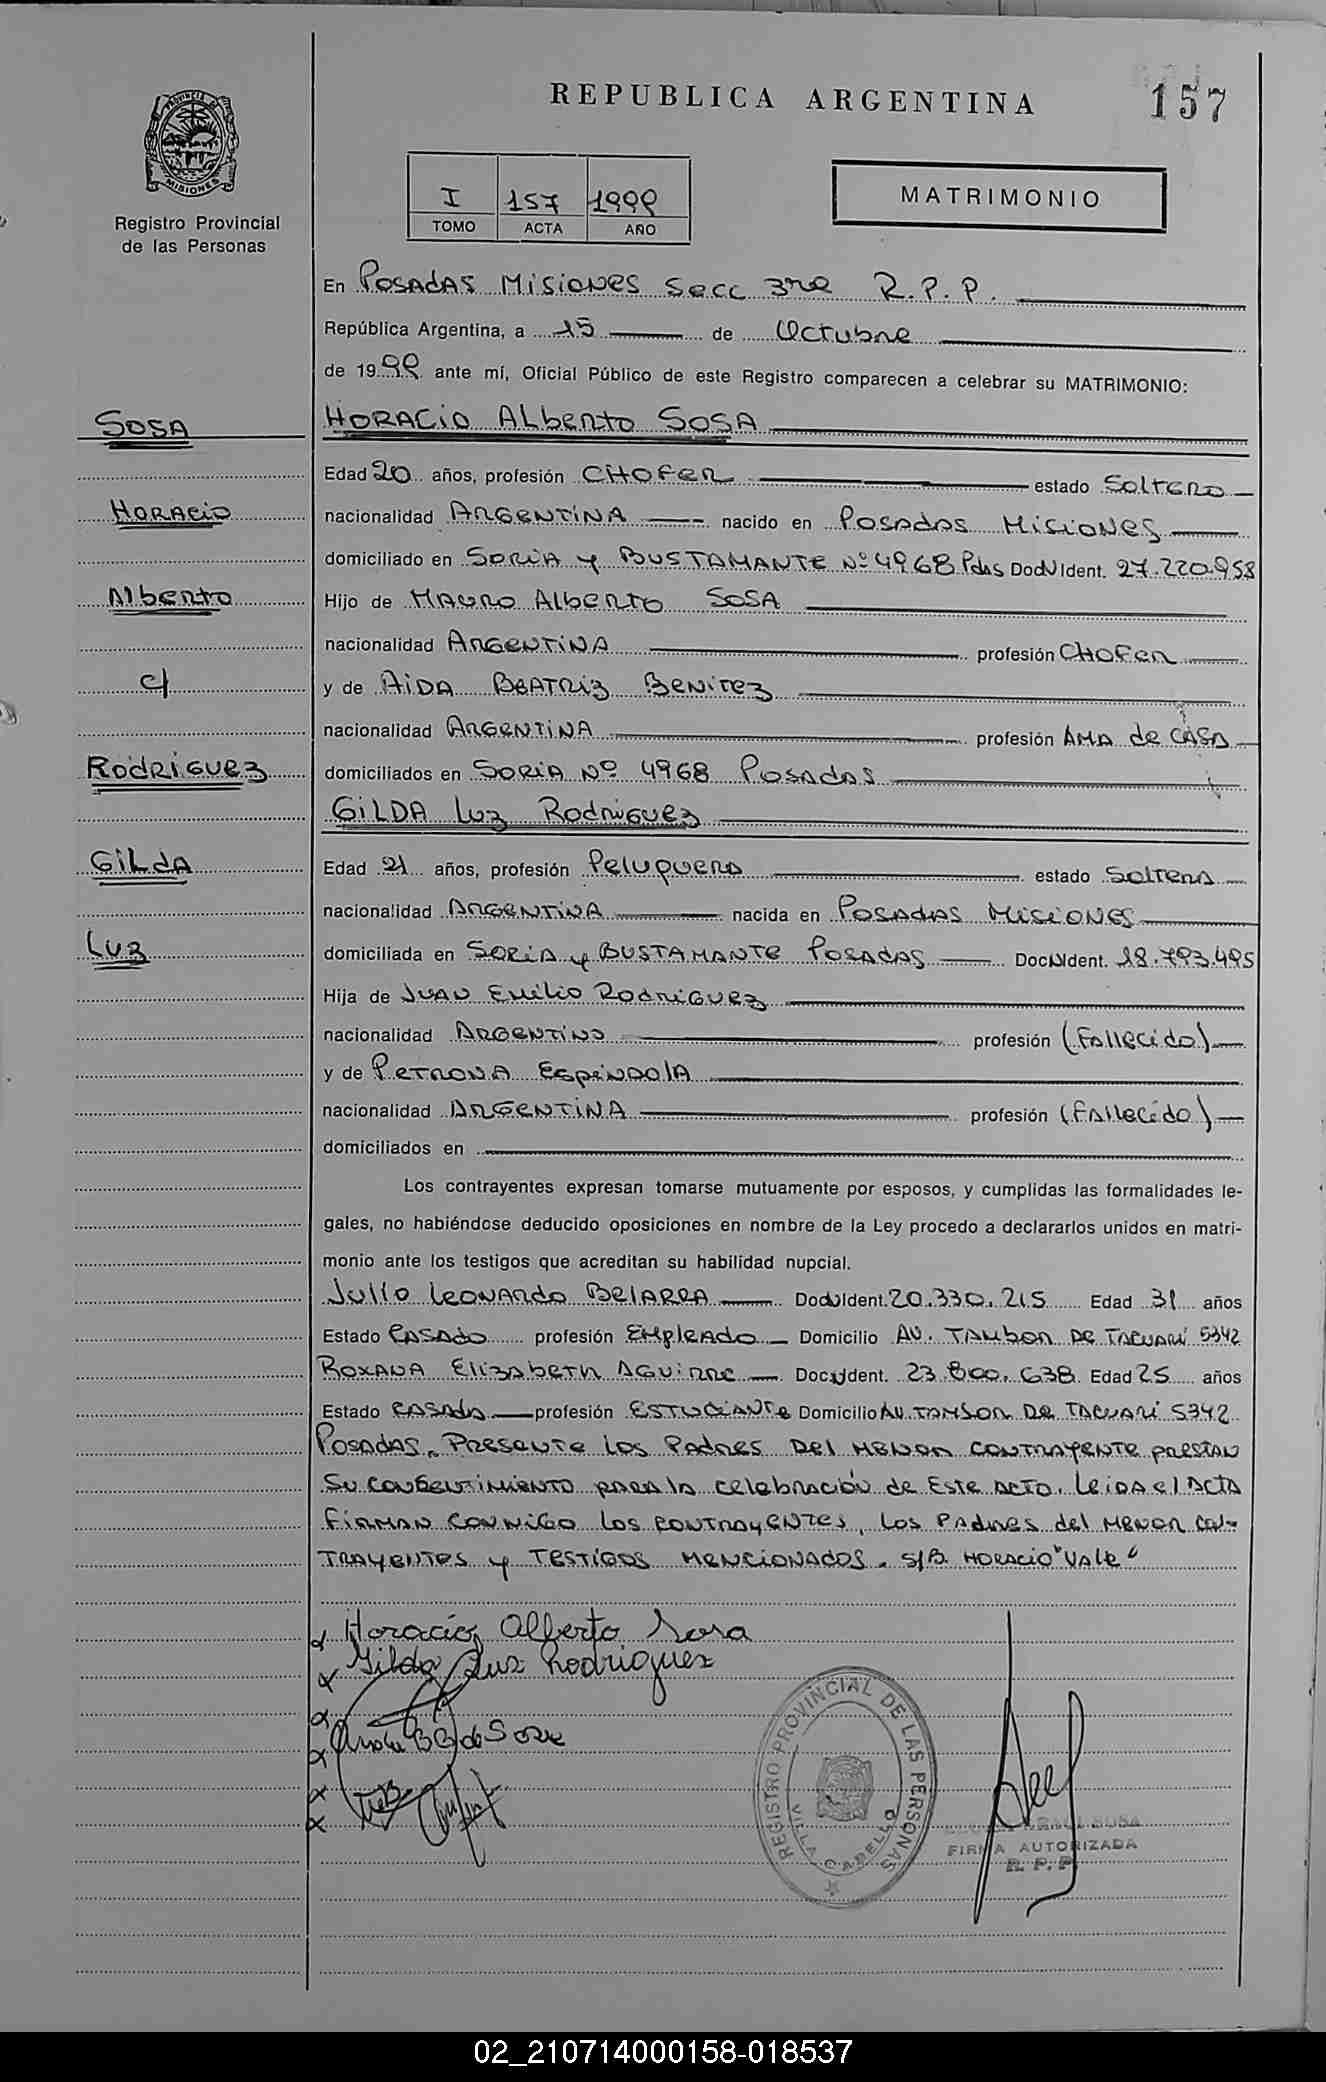 REPUBLICA ARGENTINA
157
PROVINCIA DE MISIONES
Registro Provincial
de las Personas
I 157 1999
TOMO ACTA AÑO
MATRIMONIO
En POSADAS MISIONES Secc 3ra R.P.P.
República Argentina, a 15 de Octubre
de 1999 ante mí, Oficial Público de este Registro comparecen a celebrar su MATRIMONIO:
SOSA
HORACIO ALberto SOSA
Edad 20 años, profesión CHOFER estado SOLTERO
HORACIO
nacionalidad ARGENTINA nacido en POSADAS MISIONES
domiciliado en SORIA Y BUSTAMANTE Nº 4968 Pdas DocNIdent. 27.220.958
Alberto
Hijo de MAURO Alberto SOSA
nacionalidad ARGENTINA profesión CHOFER
c/
y de AIDA BEATRIZ BENITEZ
nacionalidad ARGENTINA profesión AMA de CASA
RODRIGUEZ
domiciliados en SORIA Nº 4968 POSADAS
GILDA LUZ RODRIGUEZ
GILDA
Edad 21 años, profesión Peluquera estado SOLTERA
nacionalidad ARGENTINA nacida en POSADAS MISIONES
LUZ
domiciliada en SORIA y BUSTAMANTE POSADAS DocNIdent. 18.793.495
Hija de JUAN Emilio RODRIGUEZ
nacionalidad ARGENTINO profesión (FALLECIDO)
y de PETRONA ESPINDOLA
nacionalidad ARGENTINA profesión (FALLECIDO)
domiciliados en
Los contrayentes expresan tomarse mutuamente por esposos, y cumplidas las formalidades le-
gales, no habiéndose deducido oposiciones en nombre de la Ley procedo a declararlos unidos en matri-
monio ante los testigos que acreditan su habilidad nupcial.
Julio LEONARDO BELARRA DocNIdent. 20.330.215 Edad 31 años
Estado CASADO profesión EMPLEADO Domicilio AV. TAMBOR DE TACUARÍ 5342
ROXANA ELIZABETH AGUIRRE DocNIdent. 23.800.638 Edad 25 años
Estado CASADA profesión ESTUDIANTE Domicilio AV. TAMBOR DE TACUARÍ 5342
POSADAS. PRESENTE LOS PADRES DEL MENOR CONTRAYENTE PRESTAN
SU CONSENTIMIENTO PARA LA CELEBRACIÓN DE ESTE ACTO. LEIDA el ACTA
FIRMAN CONMIGO LOS CONTRAYENTES, LOS PADRES del MENOR CON-
TRAYENTES y TESTIGOS MENCIONADOS. S/B. HORACIO "VALE"
Horacio Alberto Sosa
Gilda Luz Rodriguez
de Sosa
REGISTRO PROVINCIAL DE LAS PERSONAS
VILLA CABELLO
SOSA
FIRMA AUTORIZADA
R. P. P.
02_210714000158-018537